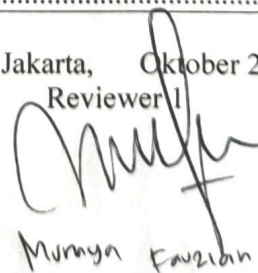 Jakarta, Oktober 2
Reviewer 1
Murnya Fauzian